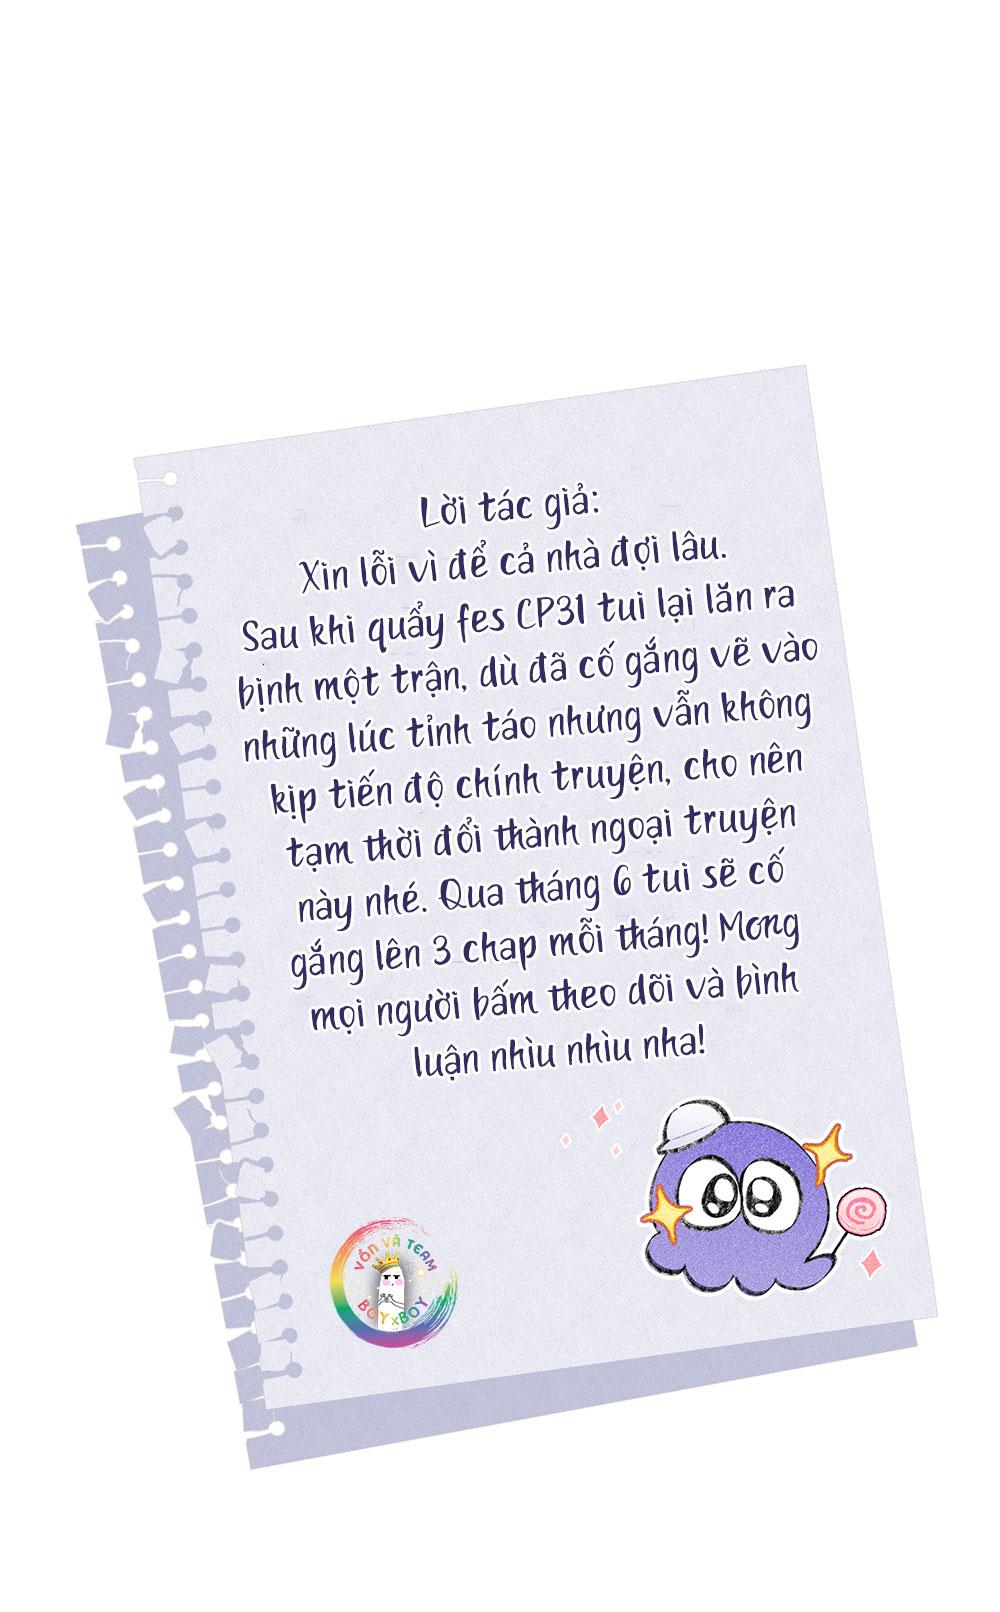 Lời tác giả:
Xin lỗi vì để cả nhà đợi lâu.
Sau khi quẩy fes CP31 tui lại lăn ra
bịnh một trận, dù đã cố gắng vẽ vào
những lúc tỉnh táo nhưng vẫn không
kịp tiến độ chính truyện, cho nên
tạm thời đổi thành ngoại truyện
này nhé. Qua tháng 6 tui sẽ cố
gắng lên 3 chap mỗi tháng! Mong
mọi người bấm theo dõi và bình
luận nhìu nhìu nha!
VỐN VÀ TEAM
BOY x BOY